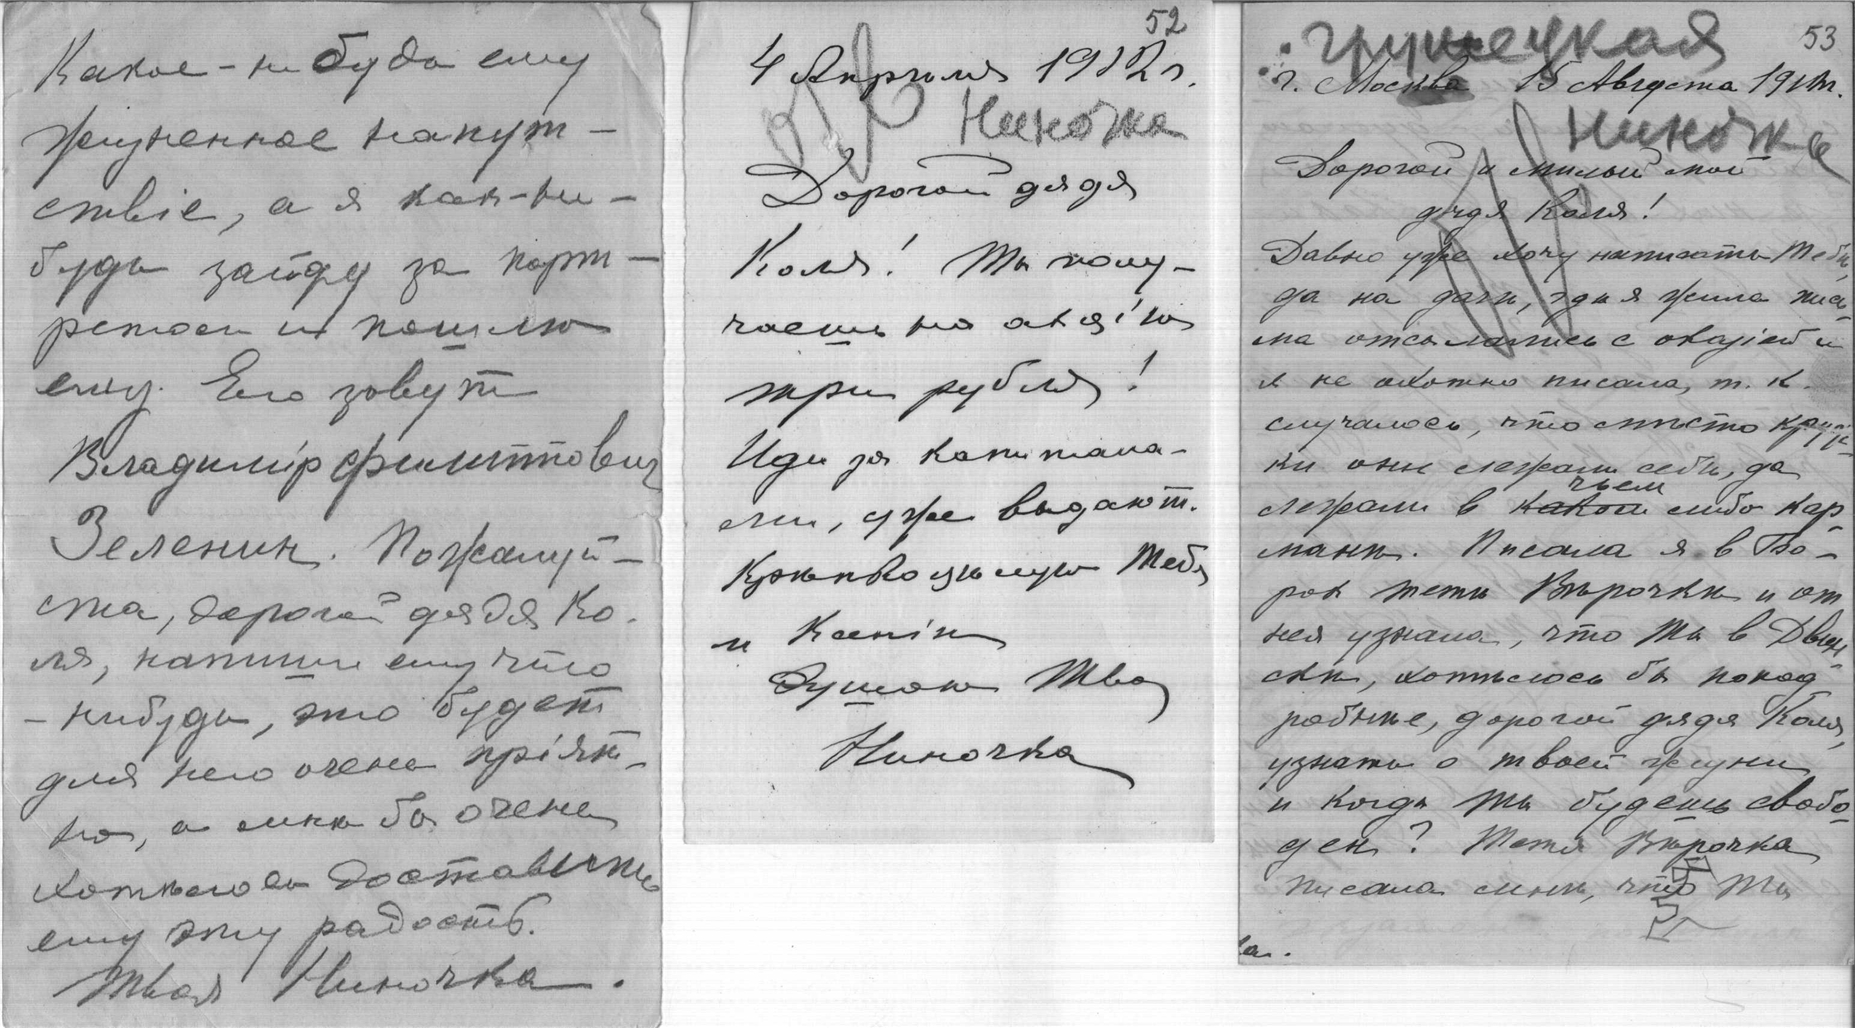 Какое-нибудь ему
жизненное напут-
ствіе, а я как-ни-
будь зайду за порт-
ретом и пошлю
ему. Его зовут
Владимір Филиппович
Зеленин. Пожалуй-
ста, дорогой дядя Ко-
ля, напиши ему что
-нибудь, это будет
для него очень пріят-
но, а мнѣ бы очень
хотѣлось доставить
ему эту радость.
Твоя Ниночка.
52
4 Апрѣля 1912 г.
Ниночка
Дорогой дядя
Коля! Ты полу-
чаешь на
три рубля!
Иди за капитала-
ми, уже выдают.
Крѣпко цѣлую Тебя
и Ксенію
Душою Твоя
Ниночка
53
Грушецкая
г. Москва 15 Августа 191 г.
Ниночка
Дорогой и милый мой
дядя Коля!
Давно уже хочу написать Тебѣ,
да на дачѣ, гдѣ я жила пись
ма отсылались с оказіей и
я не охотно писала, т. к.
случалось, что вмѣсто круж
ки они лежали себѣ, да
лежали в какой чьем либо кар
манѣ. Писала я в Бо-
рок тети Вѣрочкѣ и от
нея узнала, что Ты в Двин
скѣ, хотѣлось бы попод
робнѣе, дорогой дядя Коля,
узнать о твоей жизни
и когда Ты будешь свобо
ден? Тетя Вѣрочка
писала мнѣ, что Ты